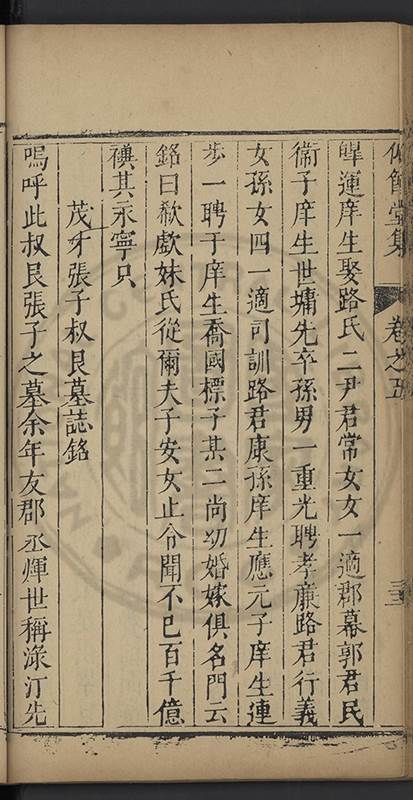 堂集 卷之五
暉運庠生娶路氏二尹君常女女一適郡幕郭君民
衞子庠生世墉先卒孫男一重光聘孝廉路君行義
女孫女四一適司訓路君康孫庠生應元子庠生連
步一聘于庠生喬國標子其二尚幼婚嫁俱名門云
銘曰欷歔妹氏從爾夫子安女止令聞不已百千億
禩其永寧只
茂才張子叔良墓誌銘
嗚呼此叔良張子之墓余年友郡丞煇世稱淥汀先